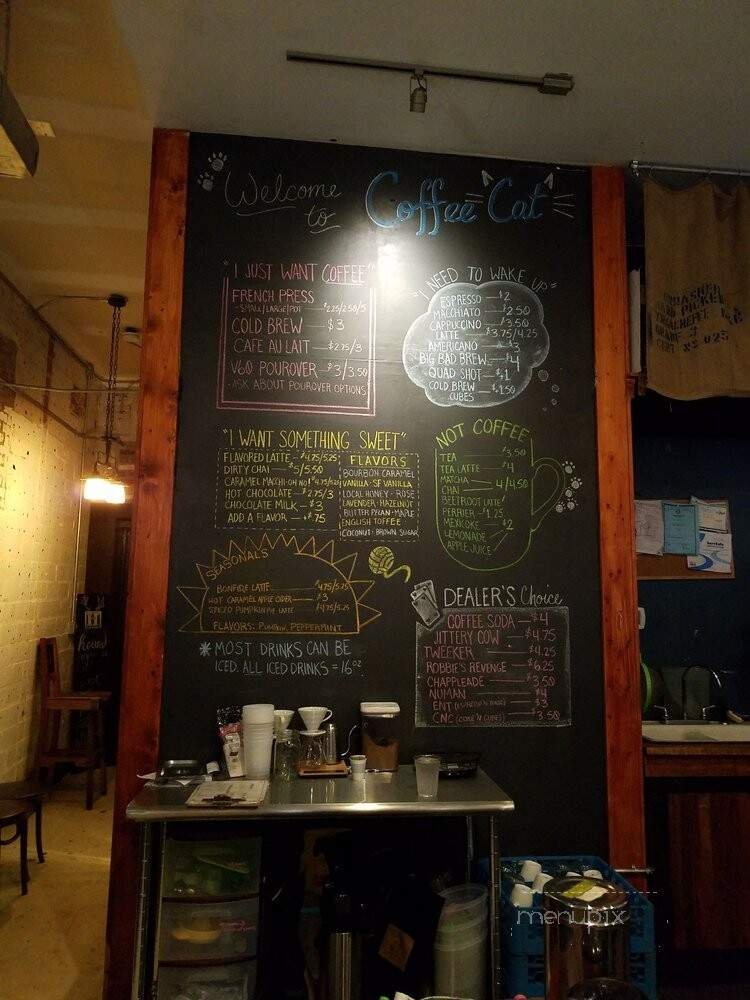 Welcome
to
Coffee Cat
"I JUST WANT COFFEE"
FRENCH PRESS
- SMALL/LARGE/POT - $2.25/2.50/5
COLD BREW — $3
CAFE AU LAIT — $2.75/3
V60 POUROVER — $3/3.50
- ASK ABOUT POUROVER OPTIONS
"I NEED TO WAKE UP"
ESPRESSO — $2
MACCHIATO — $2.50
CAPPUCCINO — $3.50
LATTE — $3.75/4.25
AMERICANO — $3
BIG BAD BREW — $4
QUAD SHOT — $1
COLD BREW CUBES — $1.50
"I WANT SOMETHING SWEET"
FLAVORED LATTE — $4.75/5.25
DIRTY CHAI — $5/5.50
CARAMEL MACCHI-OH NO! $4.75/5.25
HOT CHOCOLATE — $2.75/3
CHOCOLATE MILK — $3
ADD A FLAVOR — +$.75
FLAVORS
BOURBON CARAMEL
VANILLA · SF VANILLA
LOCAL HONEY · ROSE
LAVENDER · HAZELNUT
BUTTER PECAN · MAPLE
ENGLISH TOFFEE
COCONUT · BROWN SUGAR
NOT COFFEE
TEA — $3.50
TEA LATTE — $4
MATCHA
CHAI
BEETROOT LATTE
4/4.50
PERRIER — $1.25
MEXICOKE
LEMONADE
APPLE JUICE
$2
SEASONALS
BONFIRE LATTE — $4.75/5.25
HOT CARAMEL APPLE CIDER — $3
SPICED PUMPKIN PIE LATTE — $4.75/5.25
FLAVORS: PUMPKIN, PEPPERMINT
* MOST DRINKS CAN BE
ICED. ALL ICED DRINKS = 16oz
DEALER'S Choice
COFFEE SODA — $4
JITTERY COW — $4.75
TWEEKER — $4.25
ROBBIE'S REVENGE — $6.25
CHAPPLEADE — $3.50
NUMAN — $4
ENT — $3
CNC (COKE 'N CUBES) — $3.50
menubix